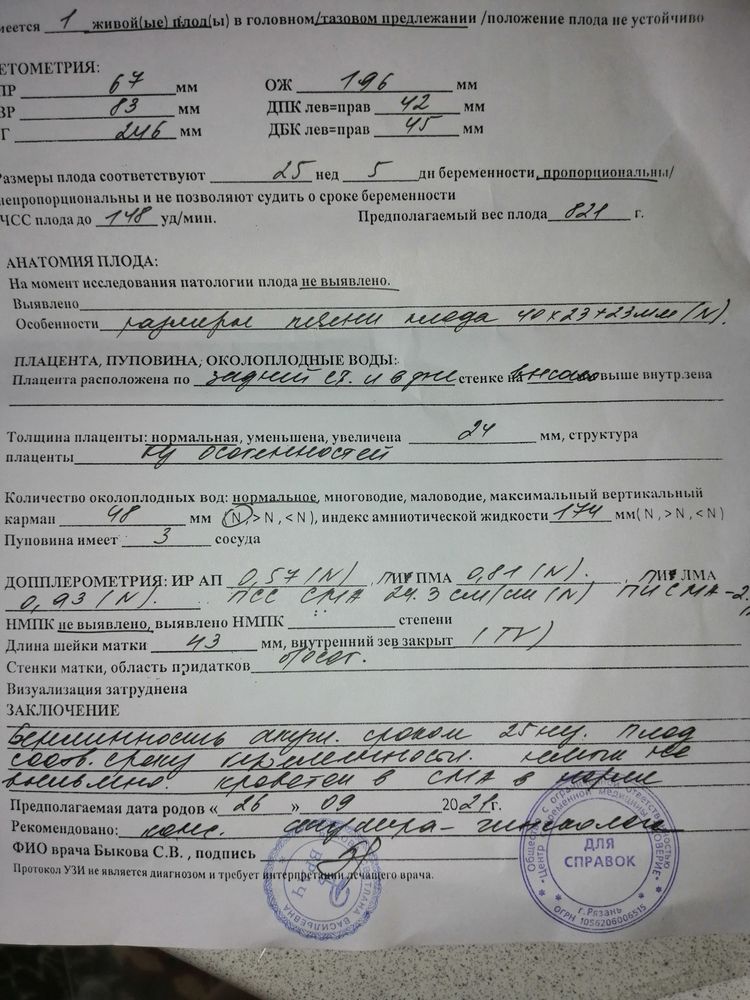 меется 1 живой(ые) плод(ы) в головном/тазовом предлежании /положение плода не устойчиво
ЕТОМЕТРИЯ:
ПР 67 мм ОЖ 196 мм
ЗР 83 мм ДПК лев=прав 42 мм
Г 246 мм ДБК лев=прав 45 мм
Размеры плода соответствуют 25 нед 5 дн беременности, пропорциональны/
непропорциональны и не позволяют судить о сроке беременности
ЧСС плода до 148 уд/мин. Предполагаемый вес плода 821 г.
АНАТОМИЯ ПЛОДА:
На момент исследования патологии плода не выявлено.
Выявлено
Особенности размеры печени плода 40х23+23мм (N).
ПЛАЦЕНТА, ПУПОВИНА, ОКОЛОПЛОДНЫЕ ВОДЫ:
Плацента расположена по задней ст. и в дне стенке на высоко выше внутр.зева
Толщина плаценты: нормальная, уменьшена, увеличена 24 мм, структура
плаценты особенностей
Количество околоплодных вод: нормальное, многоводие, маловодие, максимальный вертикальный
карман 48 мм (N, > N , < N ), индекс амниотической жидкости 174 мм( N , > N , < N )
Пуповина имеет 3 сосуда
ДОППЛЕРОМЕТРИЯ: ИР АП 0,57 (N) , ПИ ПМА 0,81 (N). , ПИ ЛМА
0,93 (N). ПСС СМА 24.3 см/сек (N) ПИ СМА - 2.
НМПК не выявлено, выявлено НМПК степени
Длина шейки матки 43 мм, внутренний зев закрыт (TV)
Стенки матки, область придатков
Визуализация затруднена
ЗАКЛЮЧЕНИЕ
Беременность акуш. сроком 25 нед. Плод
соотв. сроку беременности. не
выявлено. кровоток в СМА в норме
Предполагаемая дата родов « 26 » 09 2021г.
Рекомендовано: конс. акушера-гинеколога
ФИО врача Быкова С.В. , подпись
Протокол УЗИ не является диагнозом и требует интерпретации лечащего врача.
ВРАЧ
СВЕТЛАНА ВАСИЛЬЕВНА
ДЛЯ
СПРАВОК
г.Рязань
ОГРН 1056206006515